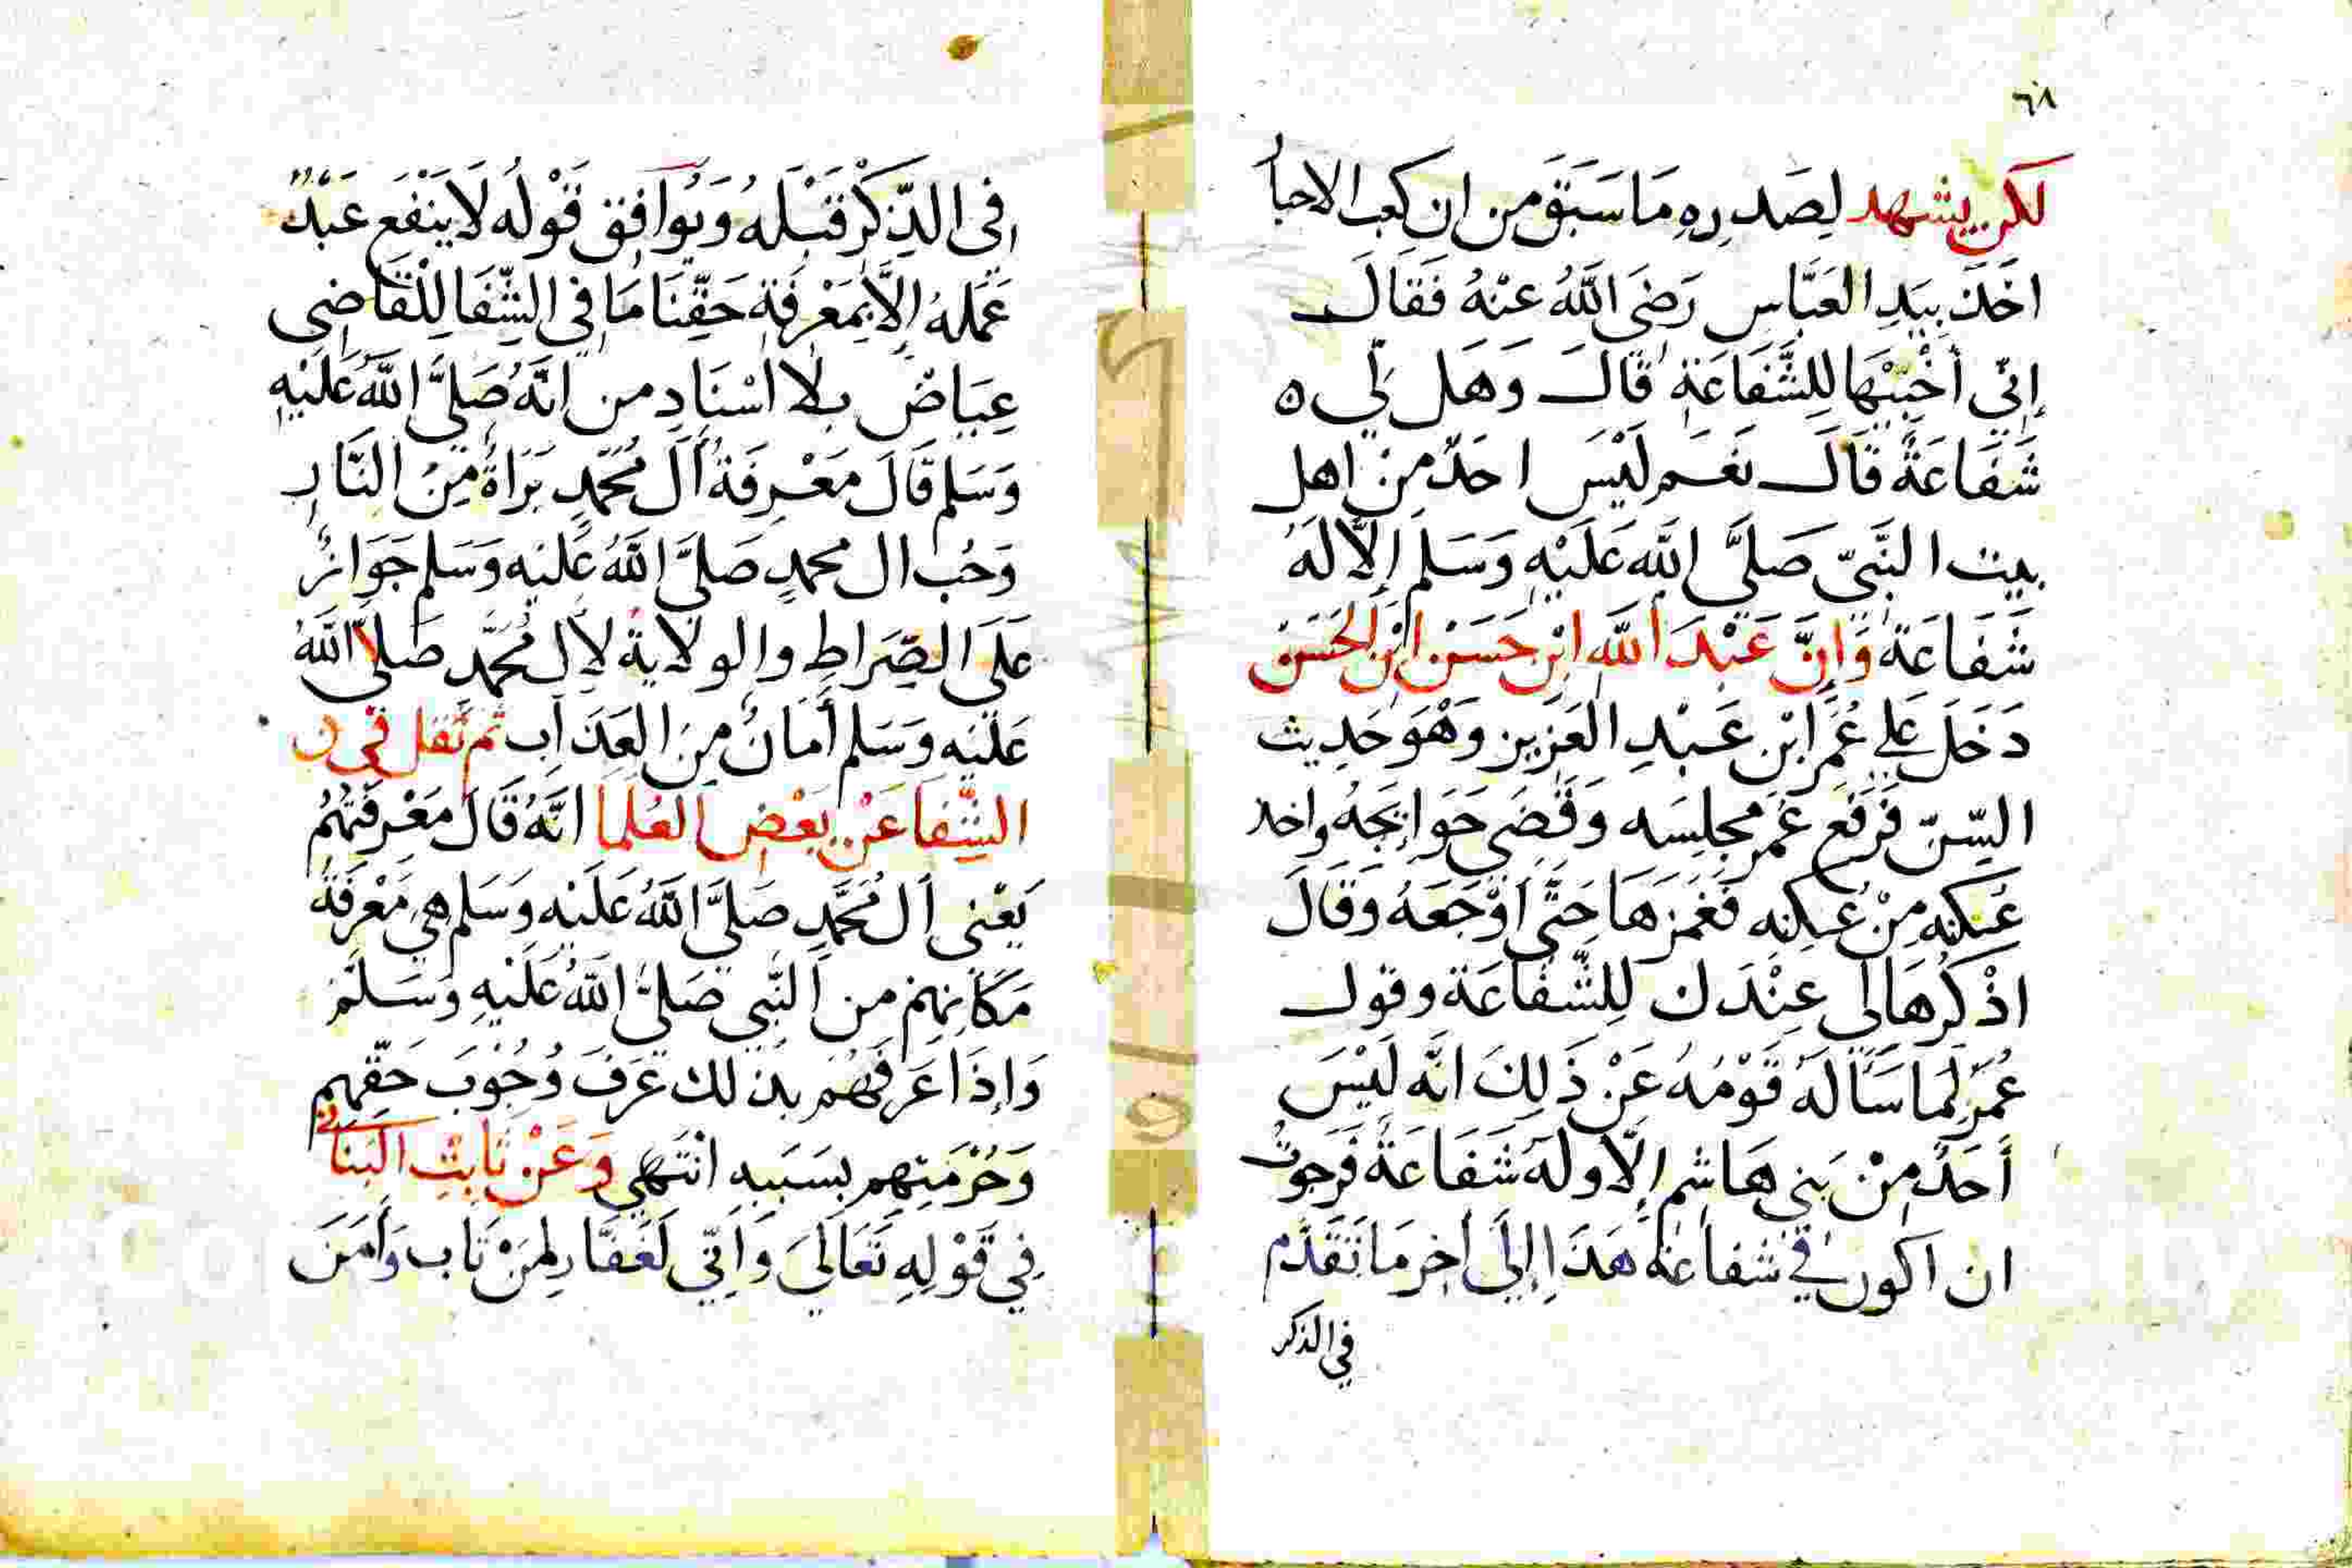 ٦٨
لكن يشهد لِصَدرِهِ مَا سَبَقَ من ان كعب الاحبا
اخَذَ بِيَدِ العَبَّاسِ رَضَى اللَّهُ عَنْهُ فَقَالَ
إنّي أخْتَبِئُهَا لِلشَّفَاعَةِ قَالَ وَهَل لي ه
شَفَاعَةٌ قَالَ نَعَم لَيْسَ احَدٌ مِنْ اهل
بيت النَّبيّ صَلَّى اللَّه عَلَيْهِ وَسَلم إلَّا لَهُ
شَفَاعَة وَانَّ عَبْدَ اللَّه ابْن حَسَن ابْن الحَسَن
دَخَلَ عَلي عُمَرَ ابْن عَبْدِ العَزِيز وَهْوَ حَدِيث
السّنّ فَرَفَع عُمَر مجلِسَه وَقَضَى حَوَائِجَهُ واخذ
عُكنَه مِنْ عُكنِه فَغَمَزَهَا حَتَّى اوْجَعَهُ وَقَالَ
اذْكُرْهَا لي عِنْدَك لِلشَّفَاعَة وقول
عُمَرَ لَما سَاَلَهُ قَوْمُهُ عَنْ ذَلِكَ انَّه لَيْسَ
أحَدٌ مِنْ بَني هَاشِم إلَّا وله شَفَاعَةٌ فَرَجوتُ
ان اكون في شفاعَة هَذَا إلَى اخِر مَا تَقَدَّم
في الذكر
فِى الذّكْر قَبْلَهُ وَيُوَافِق قَوْلُه لَا يَنْفَع عَبْدٌ
عَمَلهُ إلَّا بمَعْرِفَةِ حَقِّنَا مَا فِي الشِّفَا لِلْقَاضِى
عِيَاضٌ بلَا اسْنَادٍ من انَّهُ صَلَّى اللَّهُ عَلَيْهِ
وَسَلم قَالَ مَعْرِفَةُ آلَ مُحَمَّدٍ بَرَاةٌ مِنُ النَّارِ
وَحُبُ ال محمدٍ صَلَّى اللَّهُ عَلَيْهِ وَسَلم جَوَازٌ
عَلَى الصِّرَاطِ والولَايَةُ لِآل مُحَمَّد صَلَّى اللَّهُ
عَلَيْهِ وَسَلم أَمَانٌ مِنَ العَذَابِ ثم نَقَل في ن
الشِّفَا عَنْ بَعْضِ العُلَمَا انَّهُ قَالَ مَعْرفَتُهُمُ
يَعْنى آلَ مُحَمَّدٍ صَلَّى اللَّهُ عَلَيْه وَسَلم هِي مَعْرِفَة
مَكَانِهِمْ من النَّبِي صَلَّى اللَّهُ عَلَيْهِ وَسَلَّمْ
وَاِذَا عَرَفَهُمْ بذلك عَرَفَ وُجُوْبَ حَقّهم
وَحُرْمَتِهِم بسَبَبِهِ انْتَهِي وَعَنْ ثَابِتِ البَنَاني
فِي قَوْلِهِ تَعَالَي وَاِنّي لَغَفَّار لِمَنْ تَاب وَأَمَنَ